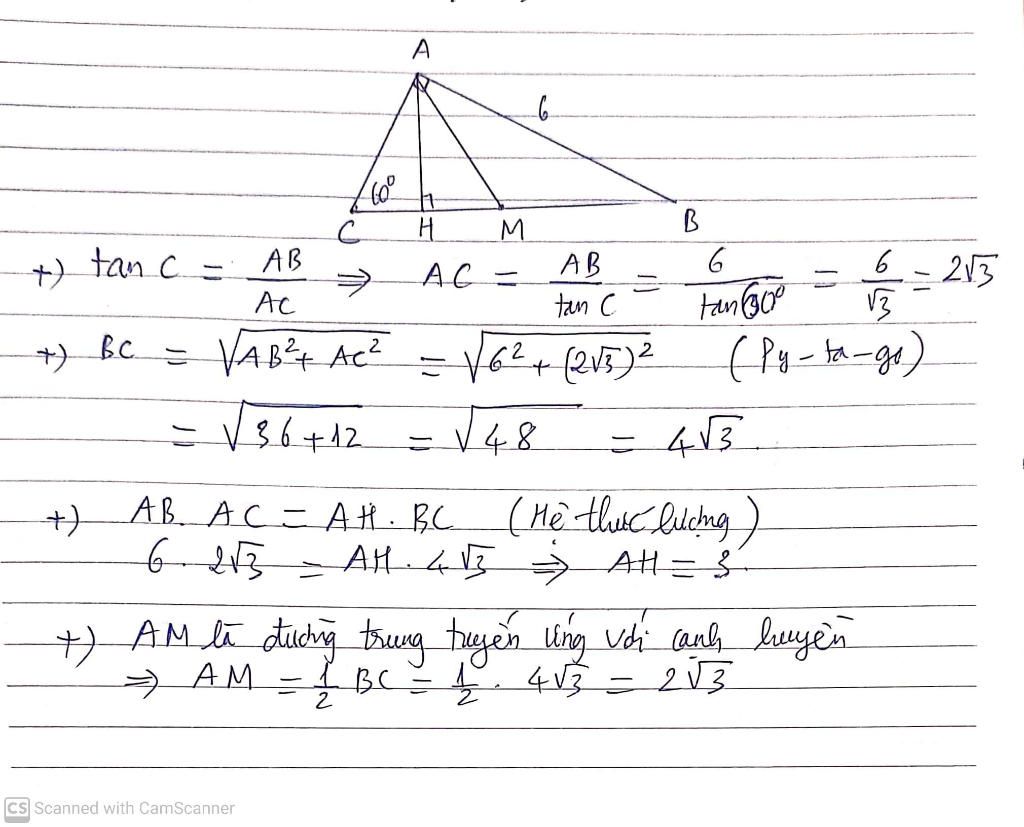 A
6
60°
C H M B
+) tan C = AB/AC ⇒ AC = AB/tan C = 6/tan60° = 6/√3 = 2√3
+) BC = √(AB² + AC²) = √(6² + (2√3)²) (Py-ta-go)
= √(36+12) = √48 = 4√3.
+) AB. AC = AH. BC (Hệ thức lượng)
6. 2√3 = AH. 4√3 ⇒ AH = 3.
+) AM là đường trung tuyến ứng với cạnh huyền
⇒ AM = 1/2 BC = 1/2 . 4√3 = 2√3
CS Scanned with CamScanner